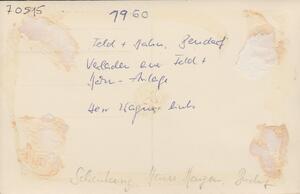 70515
1960
Feld + Mahn, Bendorf
Verladen am Feld +
Mahn-Anlage
Herr Wagner links
Schenkung Bendorf